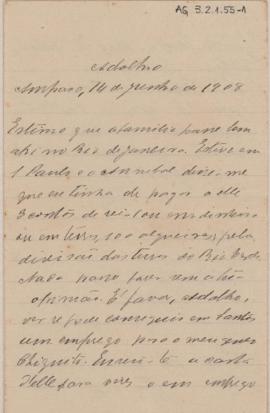 AG 3.2.1.55-1
Adolho
Amparo, 14 de Junho de 1908
Estimo que a familia passe bem
ahi no Rio de Janeiro. Estive em
S. Paulo e o disse-me
que eu tinha de pagar a elle
3 contos de reis ou em dinheiro
ou em terras, 100 alqueires, pela
divisão das terras do Rio
Nada posso fazer sem a tua
opinião. É favor, Adolho,
ver se pode conseguir em Santos
um emprego para o meu genro
Chiquito. Enviei-te a carta
d'elle para veres o emprego